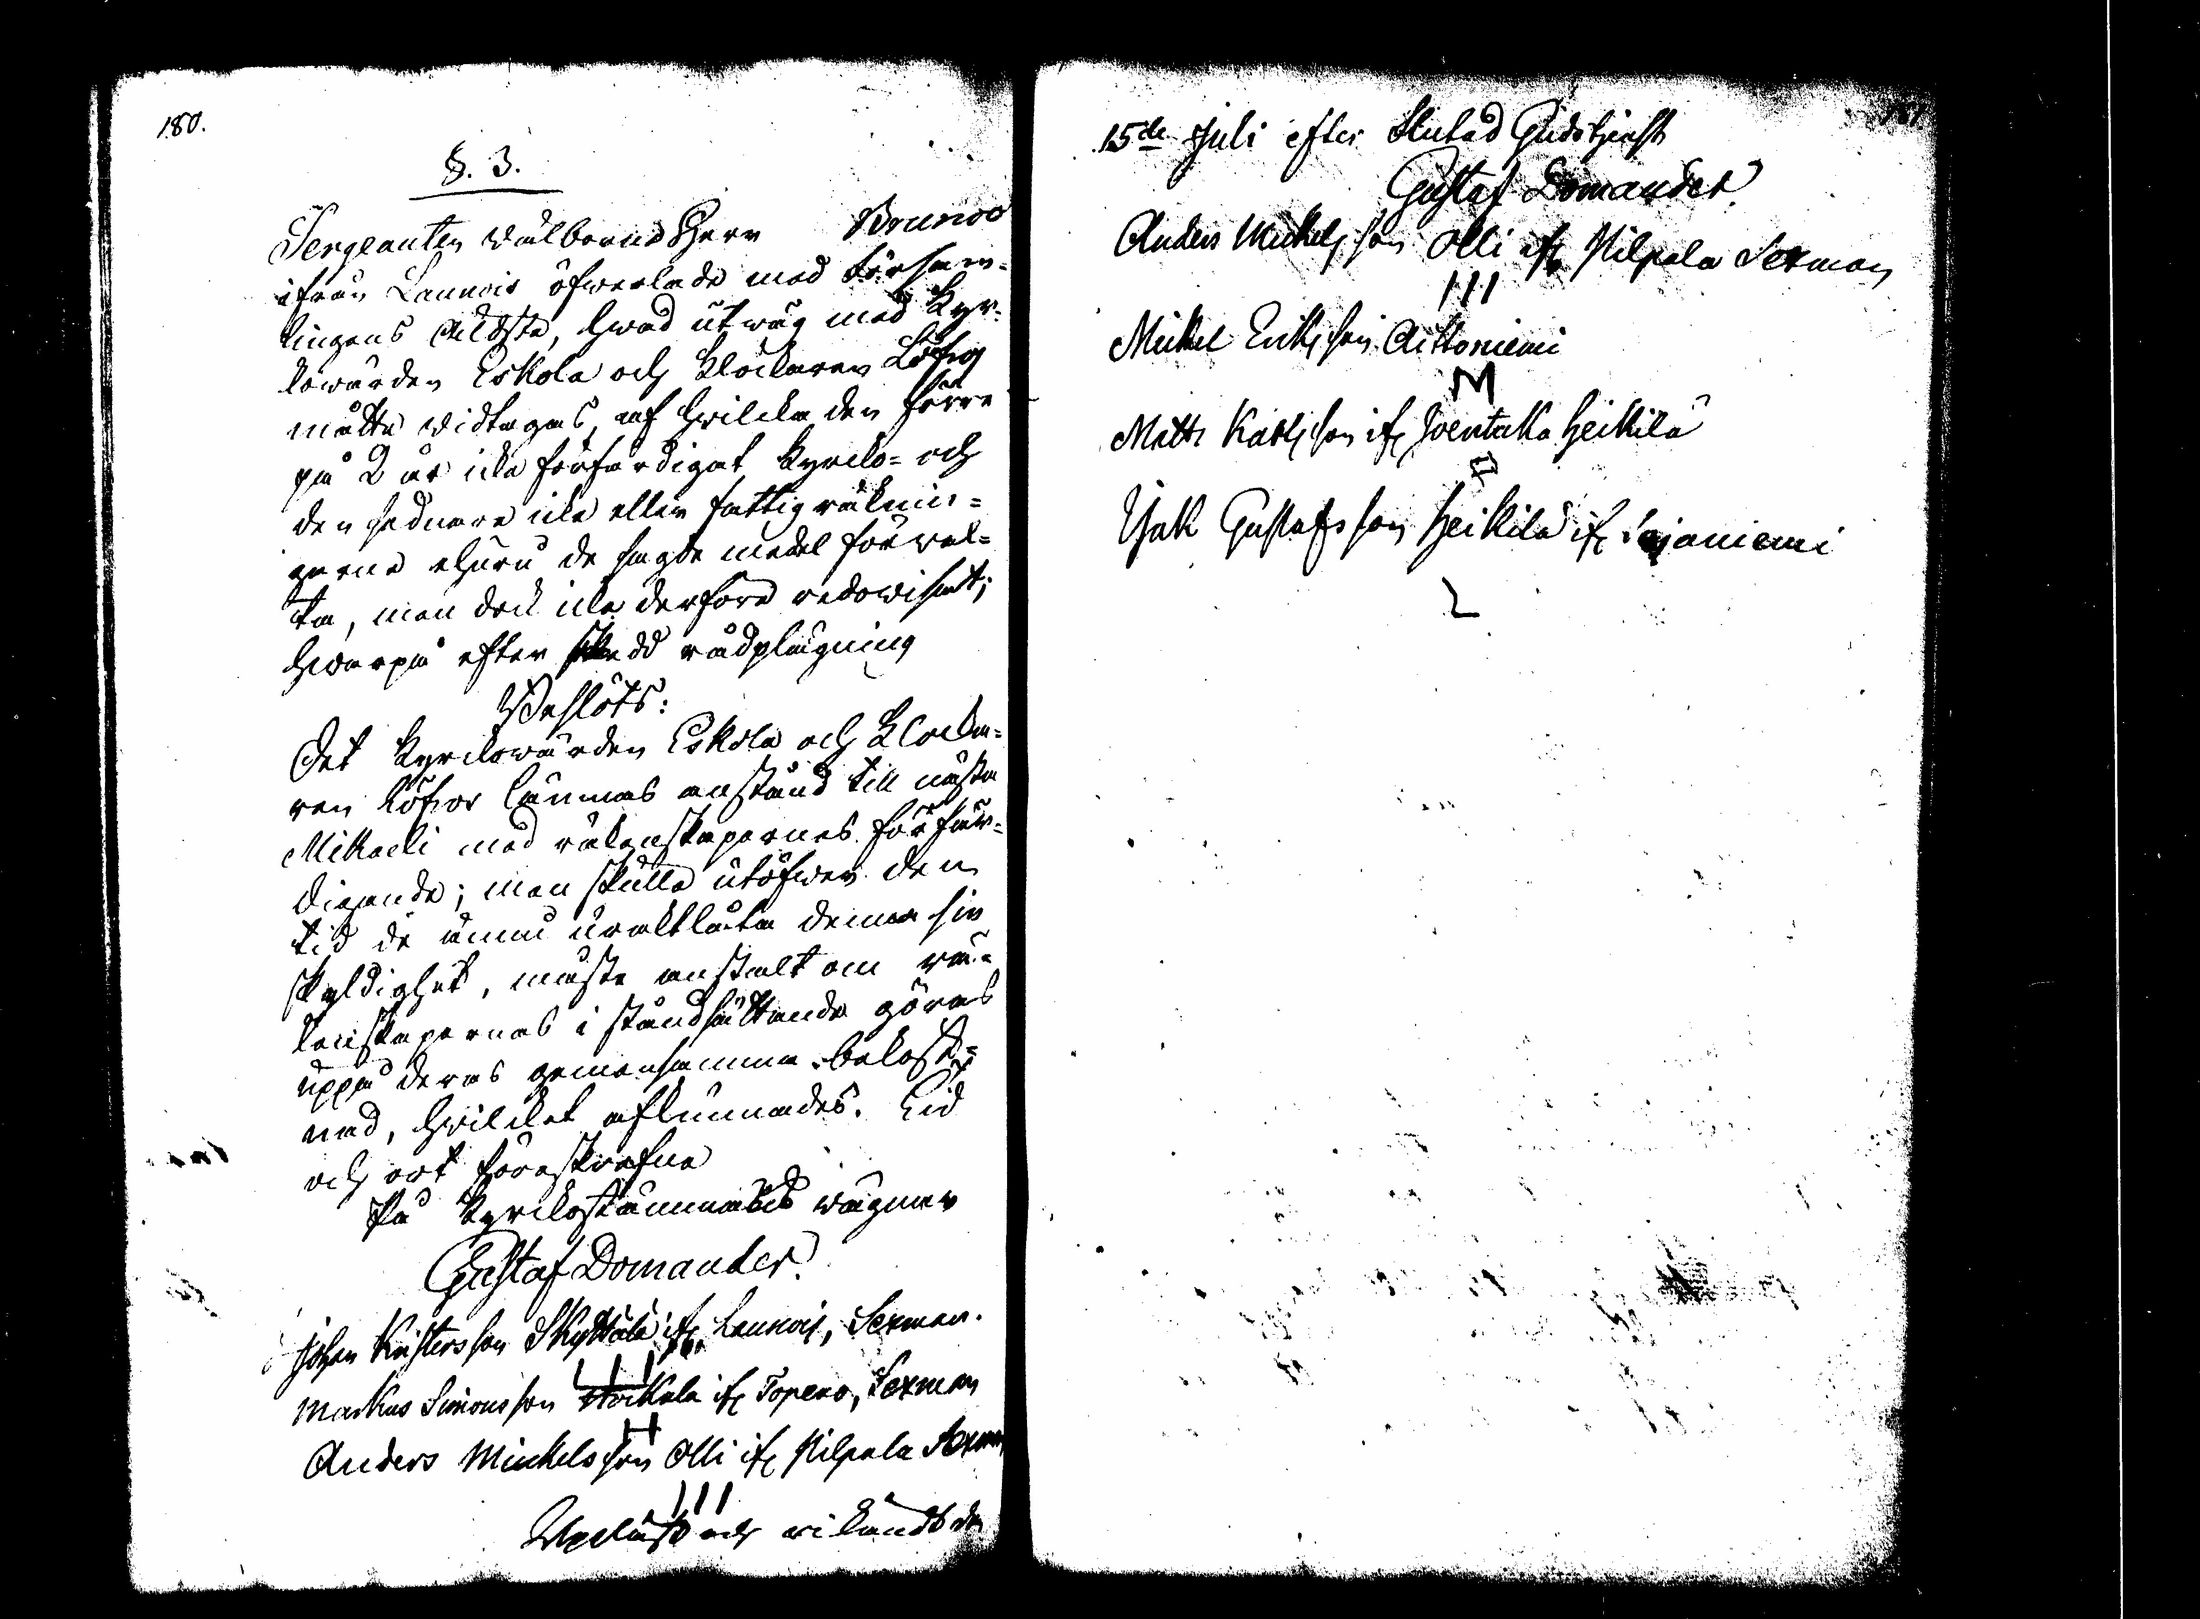 180.
§. 3.
Sergeanten Wälborne Herr Brunoo
ifrån Launois öfwerlade med Försam-
lingens Äldsta, hwad utwäg med Kyr-
kowärden Eskola och Klockaren Löfroos
måtte widtagas, af hwilka den förre
på 2 år icke förfärdigat Kyrko- och
den sednare icke eller fattigräknin-
garne ehuru de sagde medel förwal-
ta, men dock icke derföre redowisat;
hwarpå efter skedd rådplägning
Beslöts:
Det Kyrkowärden Eskola och Klocka-
ren Löfroos lämnas anstånd till nästa
Mikaeli med räkenskapernes förfär-
digande; men skulle utöfwer den
tid de ännu uraktlåta denna sin
skyldighet, måste anstalt om rä-
kenskapernas i ståndsättande göras
uppå deras gemensamma bekost-
nad, hwilket aflunnades. Tid
och ort föreskrefne
På Kyrkostämmans wägnar
Gustaf Domander.
Johan Kristersson Skyttälä ifr. Launois, Sexman.
III
Markus Simonsson Storkala ifr Topeno, Sexman
H
Anders Mickelsson Olli ifr Pilpala Sexman
III
Upläst och wikändt den
181
15de Juli efter Slutad Gudstjenst
Gustaf Domander.
Anders Mickelsson Olli ifr Pilpala Sexman
III
Mickel Ericksson Aittoniemi
M
Matts Karlsson ifr Joentaka Heikilä
Jak Gustafsson Heikilä ifr Sajaniemi